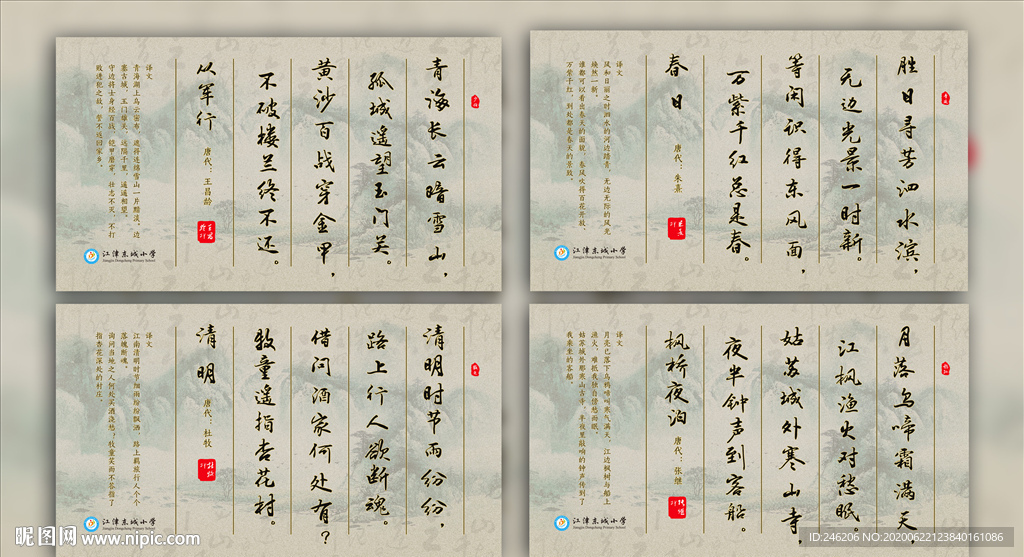 青海长云暗雪山，
孤城遥望玉门关。
黄沙百战穿金甲，
不破楼兰终不还。
从军行
唐代：王昌龄
译文
青海湖上乌云密布，遮得连绵雪山一片黯淡。边
塞古城，玉门雄关，远隔千里，遥遥相望。
守边将士身经百战，铠甲磨穿，壮志不灭，不打
败进犯之敌，誓不返回家乡。
江津东城小学
Jiangjin Dongcheng Primary School
胜日寻芳泗水滨，
无边光景一时新。
等闲识得东风面，
万紫千红总是春。
春日
唐代：朱熹
译文
风和日丽之时泗水的河边踏青，无边无际的风光
焕然一新。
谁都可以看出春天的面貌，春风吹得百花开放、
万紫千红，到处都是春天的景致。
江津东城小学
Jiangjin Dongcheng Primary School
清明时节雨纷纷，
路上行人欲断魂。
借问酒家何处有？
牧童遥指杏花村。
清明
唐代：杜牧
译文
江南清明时节细雨纷纷飘洒，路上羁旅行人个个
落魄断魂。
询问当地之人何处买酒浇愁，牧童笑而不答指了
指杏花深处的村庄。
江津东城小学
月落乌啼霜满天，
江枫渔火对愁眠。
姑苏城外寒山寺，
夜半钟声到客船。
枫桥夜泊
唐代：张继
译文
月亮已落下乌鸦啼叫寒气满天，江边枫树与船上
渔火，难抵我独自傍愁而眠。
姑苏城外那寒山古寺，半夜里敲响的钟声传到了
我乘坐的客船。
江津东城小学
昵图网 www.nipic.com
ID:246206 NO:20200622123840161086